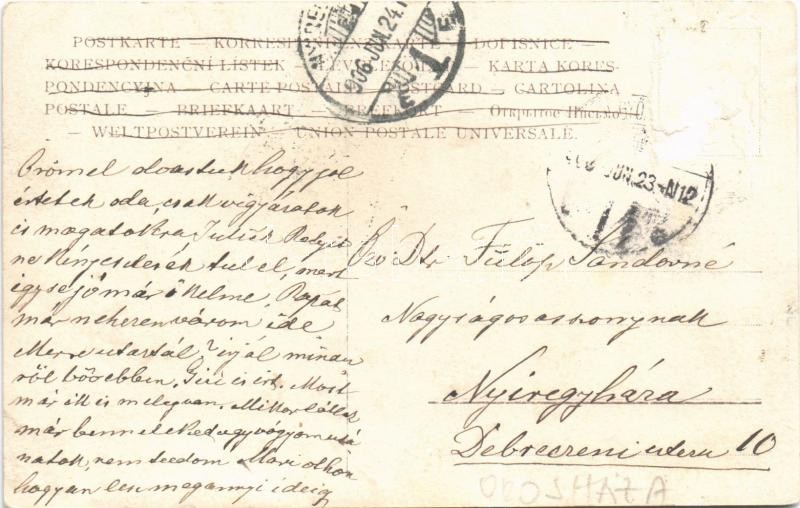 POSTKARTE — KORRESPONDENZKARTE — DOPISNICE —
KORESPONDENČNÍ LÍSTEK — KARTA KORES-
PONDENCYJNA — CARTE POSTALE — POSTCARD — CARTOLINA
POSTALE — BRIEFKAART — BREFKORT — Открытое Письмо
— WELTPOSTVEREIN — UNION POSTALE UNIVERSALE.
906 JUN. 24.
906 JUN. 23. N12
Örömel olvastuk hogy jól
értetek oda, csak vigyázatok
is magatokra Juliska
ne kényeztessék tul el, mert
igy se jó már ő kelme,
már neheren várom ide
Merre utaztál? irjál minden
ről bővebben. Gizi is irt. Most
már itt is meleg van. Mikor látlak
már benneteket ugy vágyom utá
natok, nem tudom Mari otthon
hogyan lesz magannyi ideig
Özv Dr. Fülöp Sandorné
Nagyságos asszonynak
Nyiregyháza
Debreczeni utcza 10
OROSHÁZA